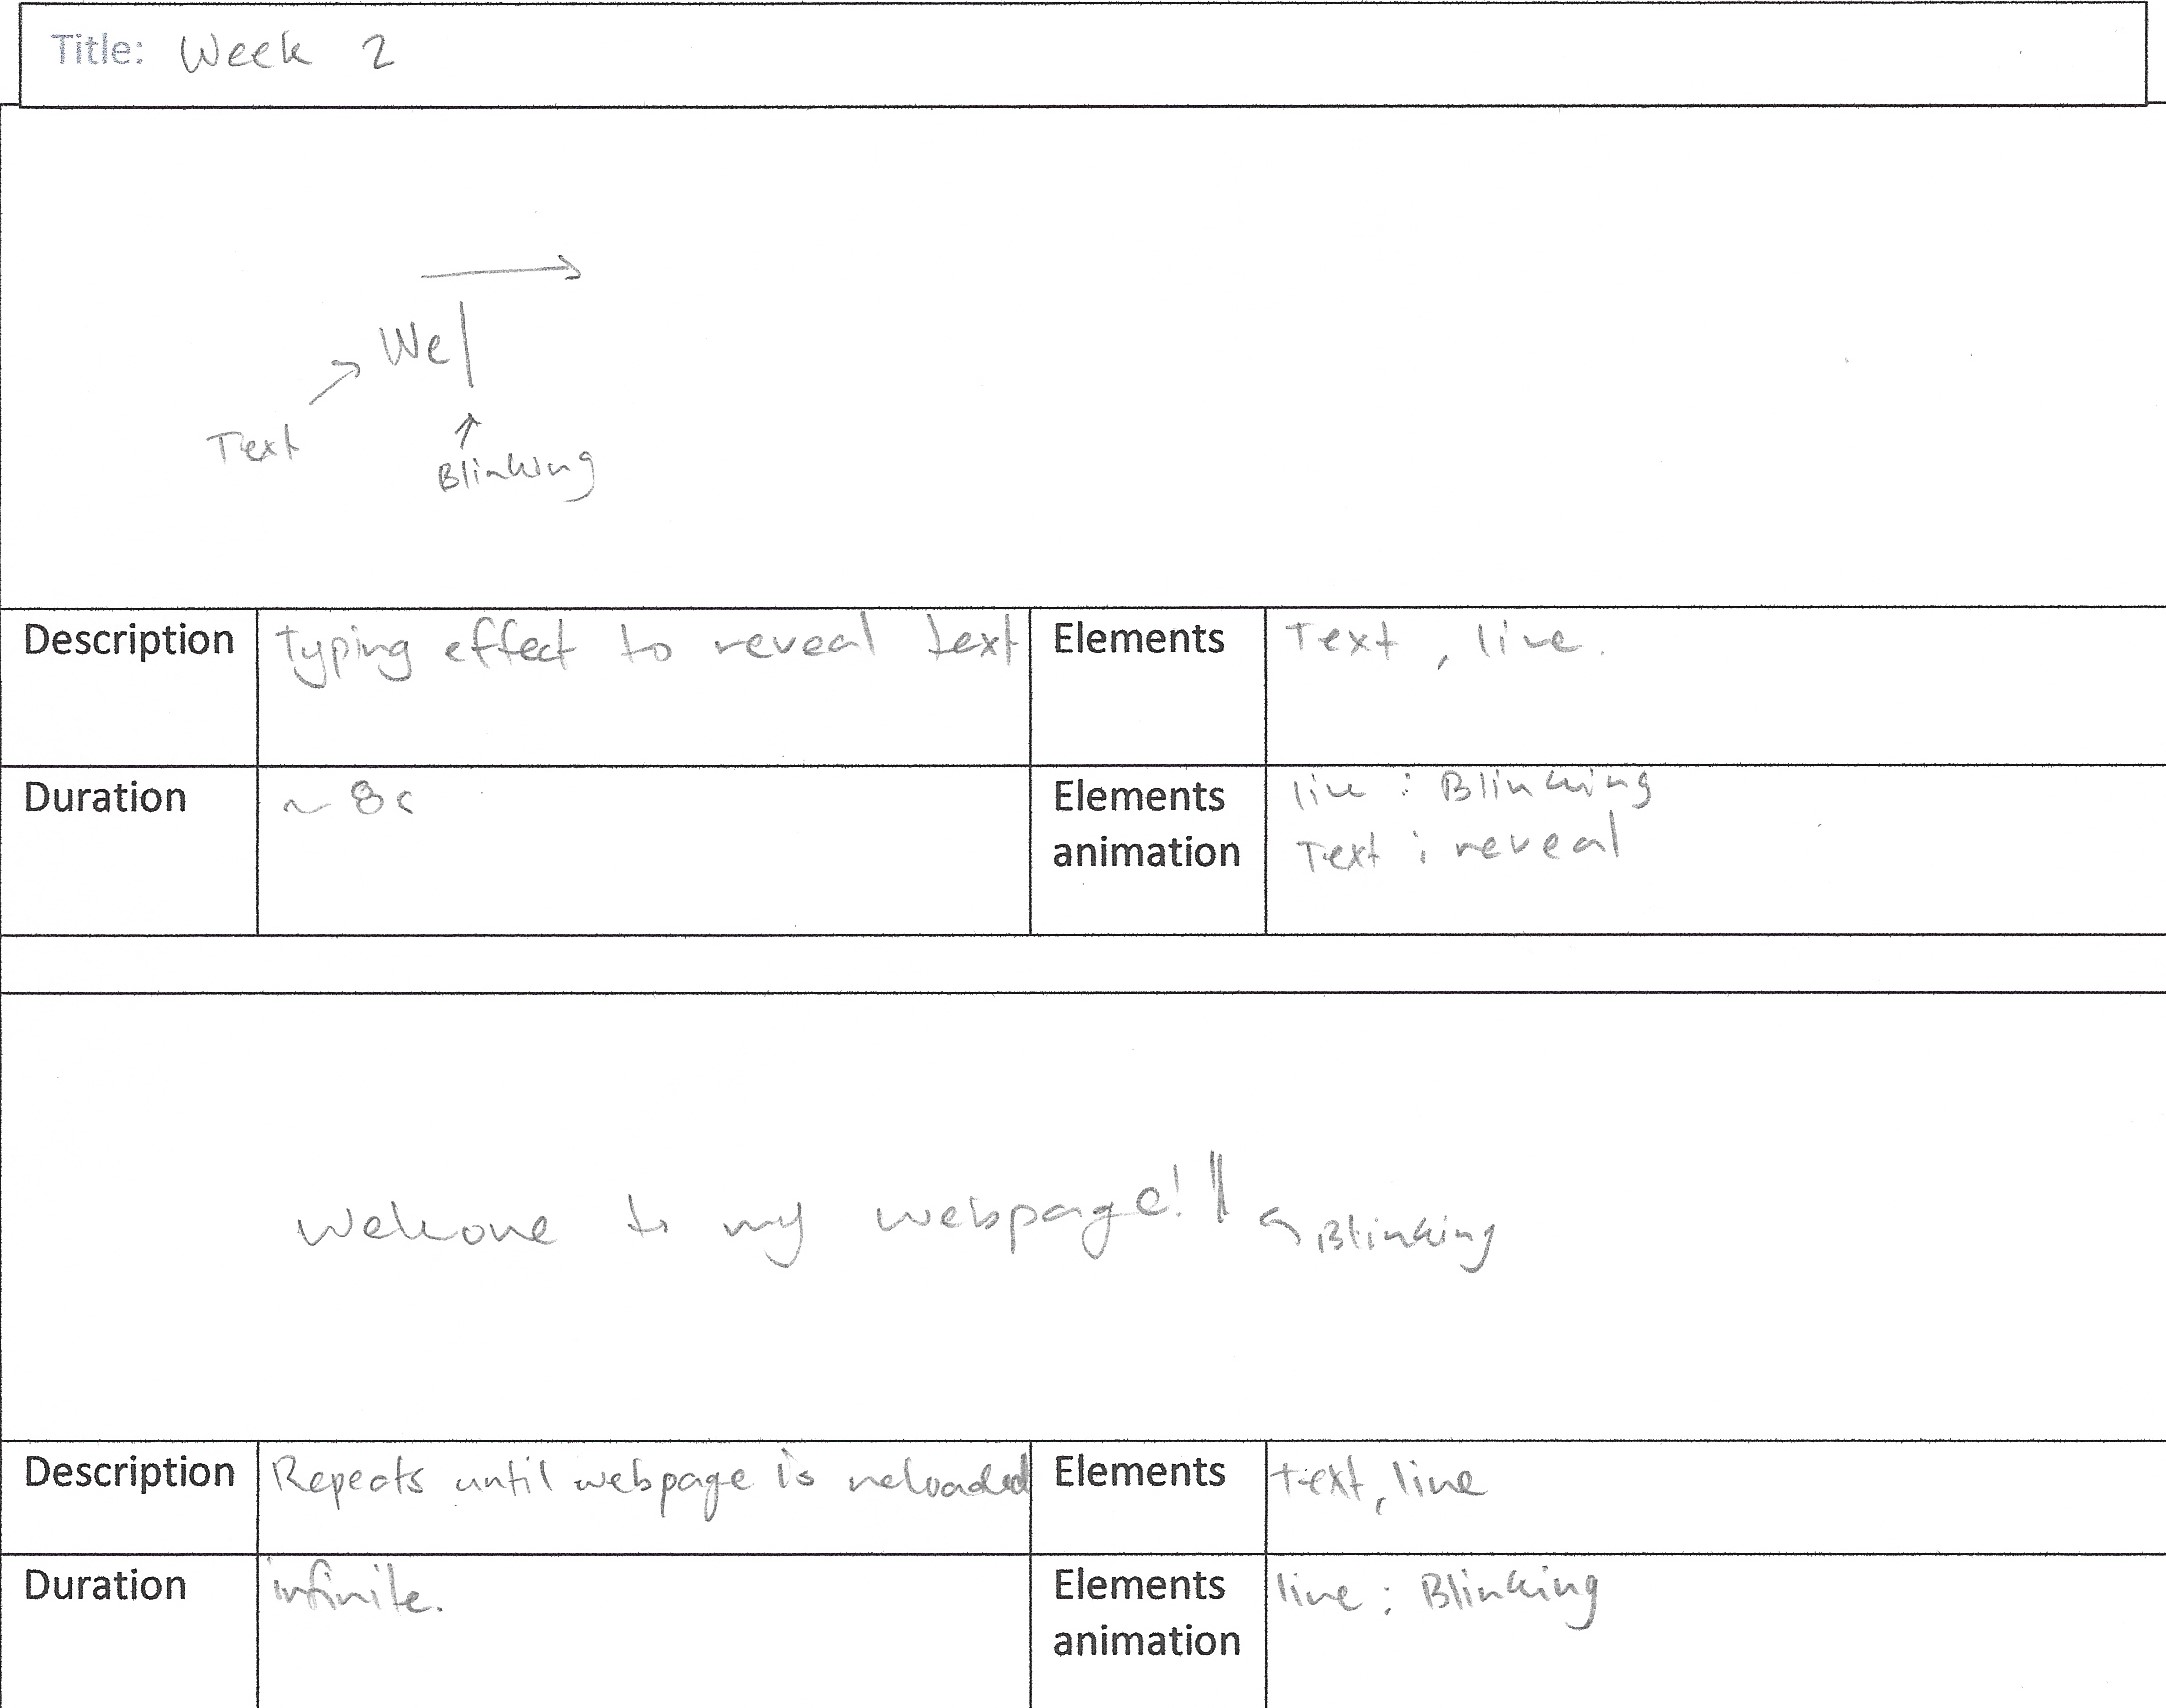 Title: Week 2
We|
Text
Blinking
Description typing effect to reveal text Elements Text, line.
Duration ~ 8s Elements animation line : Blinking
Text : reveal
Welcome to my webpage! Blinking
Description Repeats until webpage is reloaded Elements text, line
Duration infinite. Elements animation line : Blinking